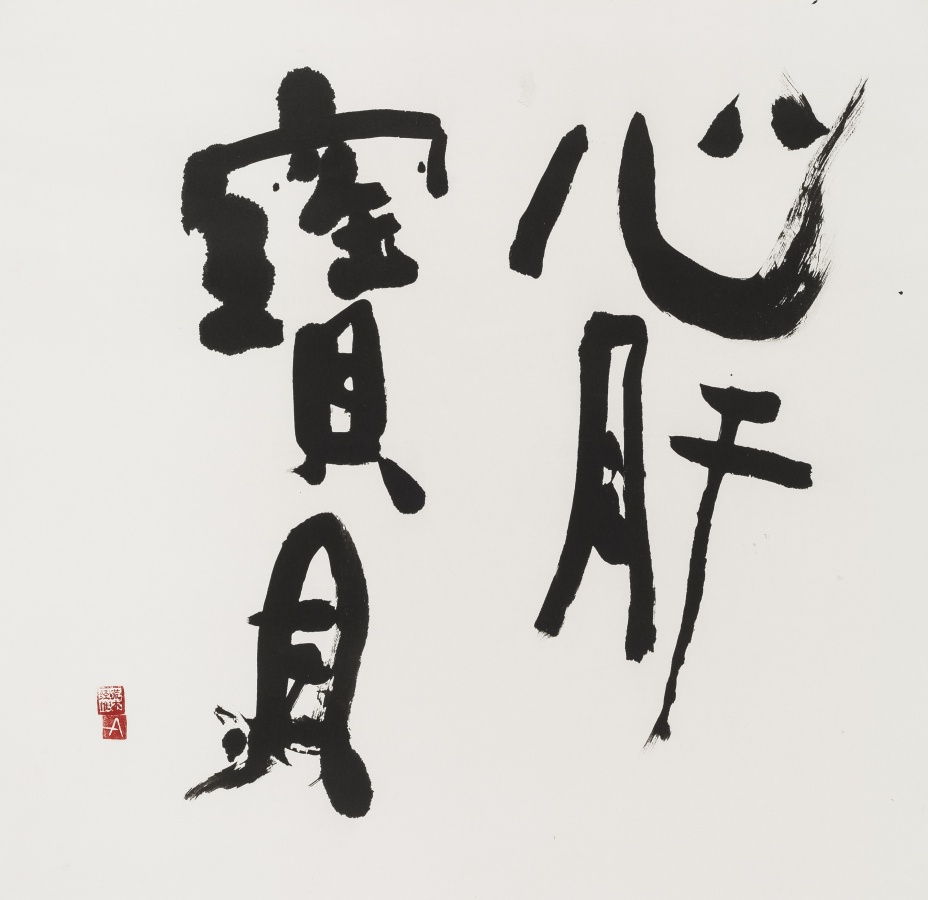 心肝
寶貝
A